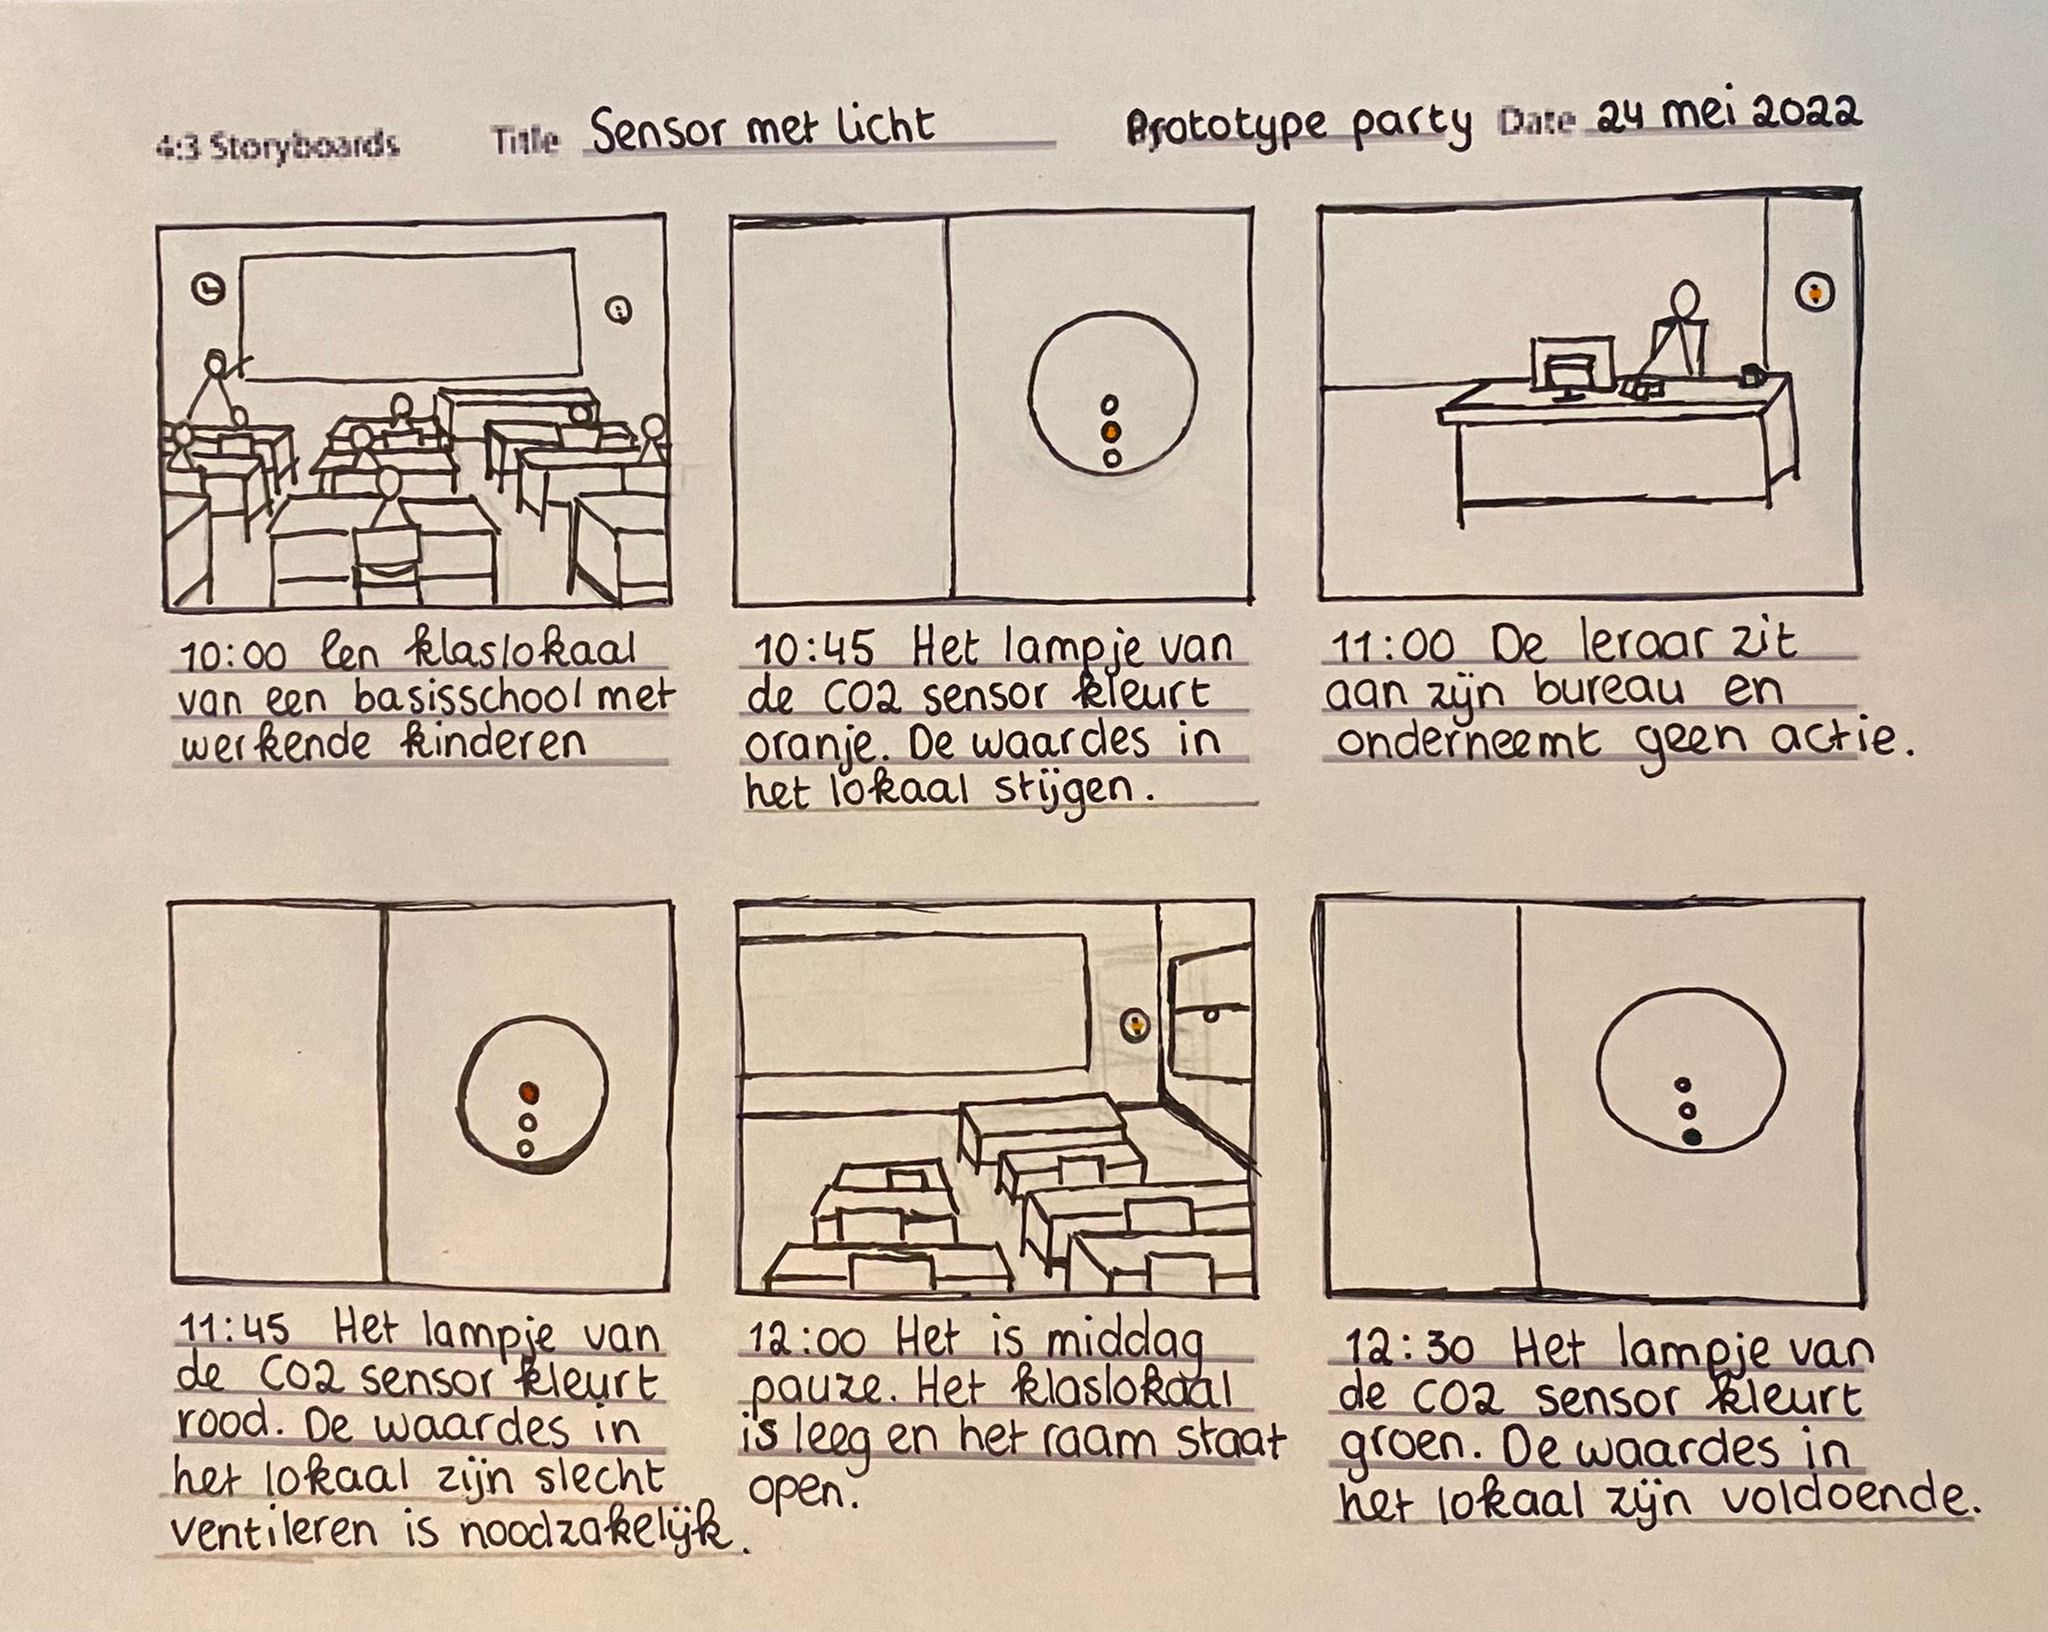 4:3 Storyboards Title Sensor met licht Prototype party Date 24 mei 2022
10:00 Een klaslokaal
van een basisschool met
werkende kinderen
10:45 Het lampje van
de CO2 sensor kleurt
oranje. De waardes in
het lokaal stijgen.
11:00 De leraar zit
aan zijn bureau en
onderneemt geen actie.
11:45 Het lampje van
de CO2 sensor kleurt
rood. De waardes in
het lokaal zijn slecht
ventileren is noodzakelijk.
12:00 Het is middag
pauze. Het klaslokaal
is leeg en het raam staat
open.
12:30 Het lampje van
de CO2 sensor kleurt
groen. De waardes in
het lokaal zijn voldoende.